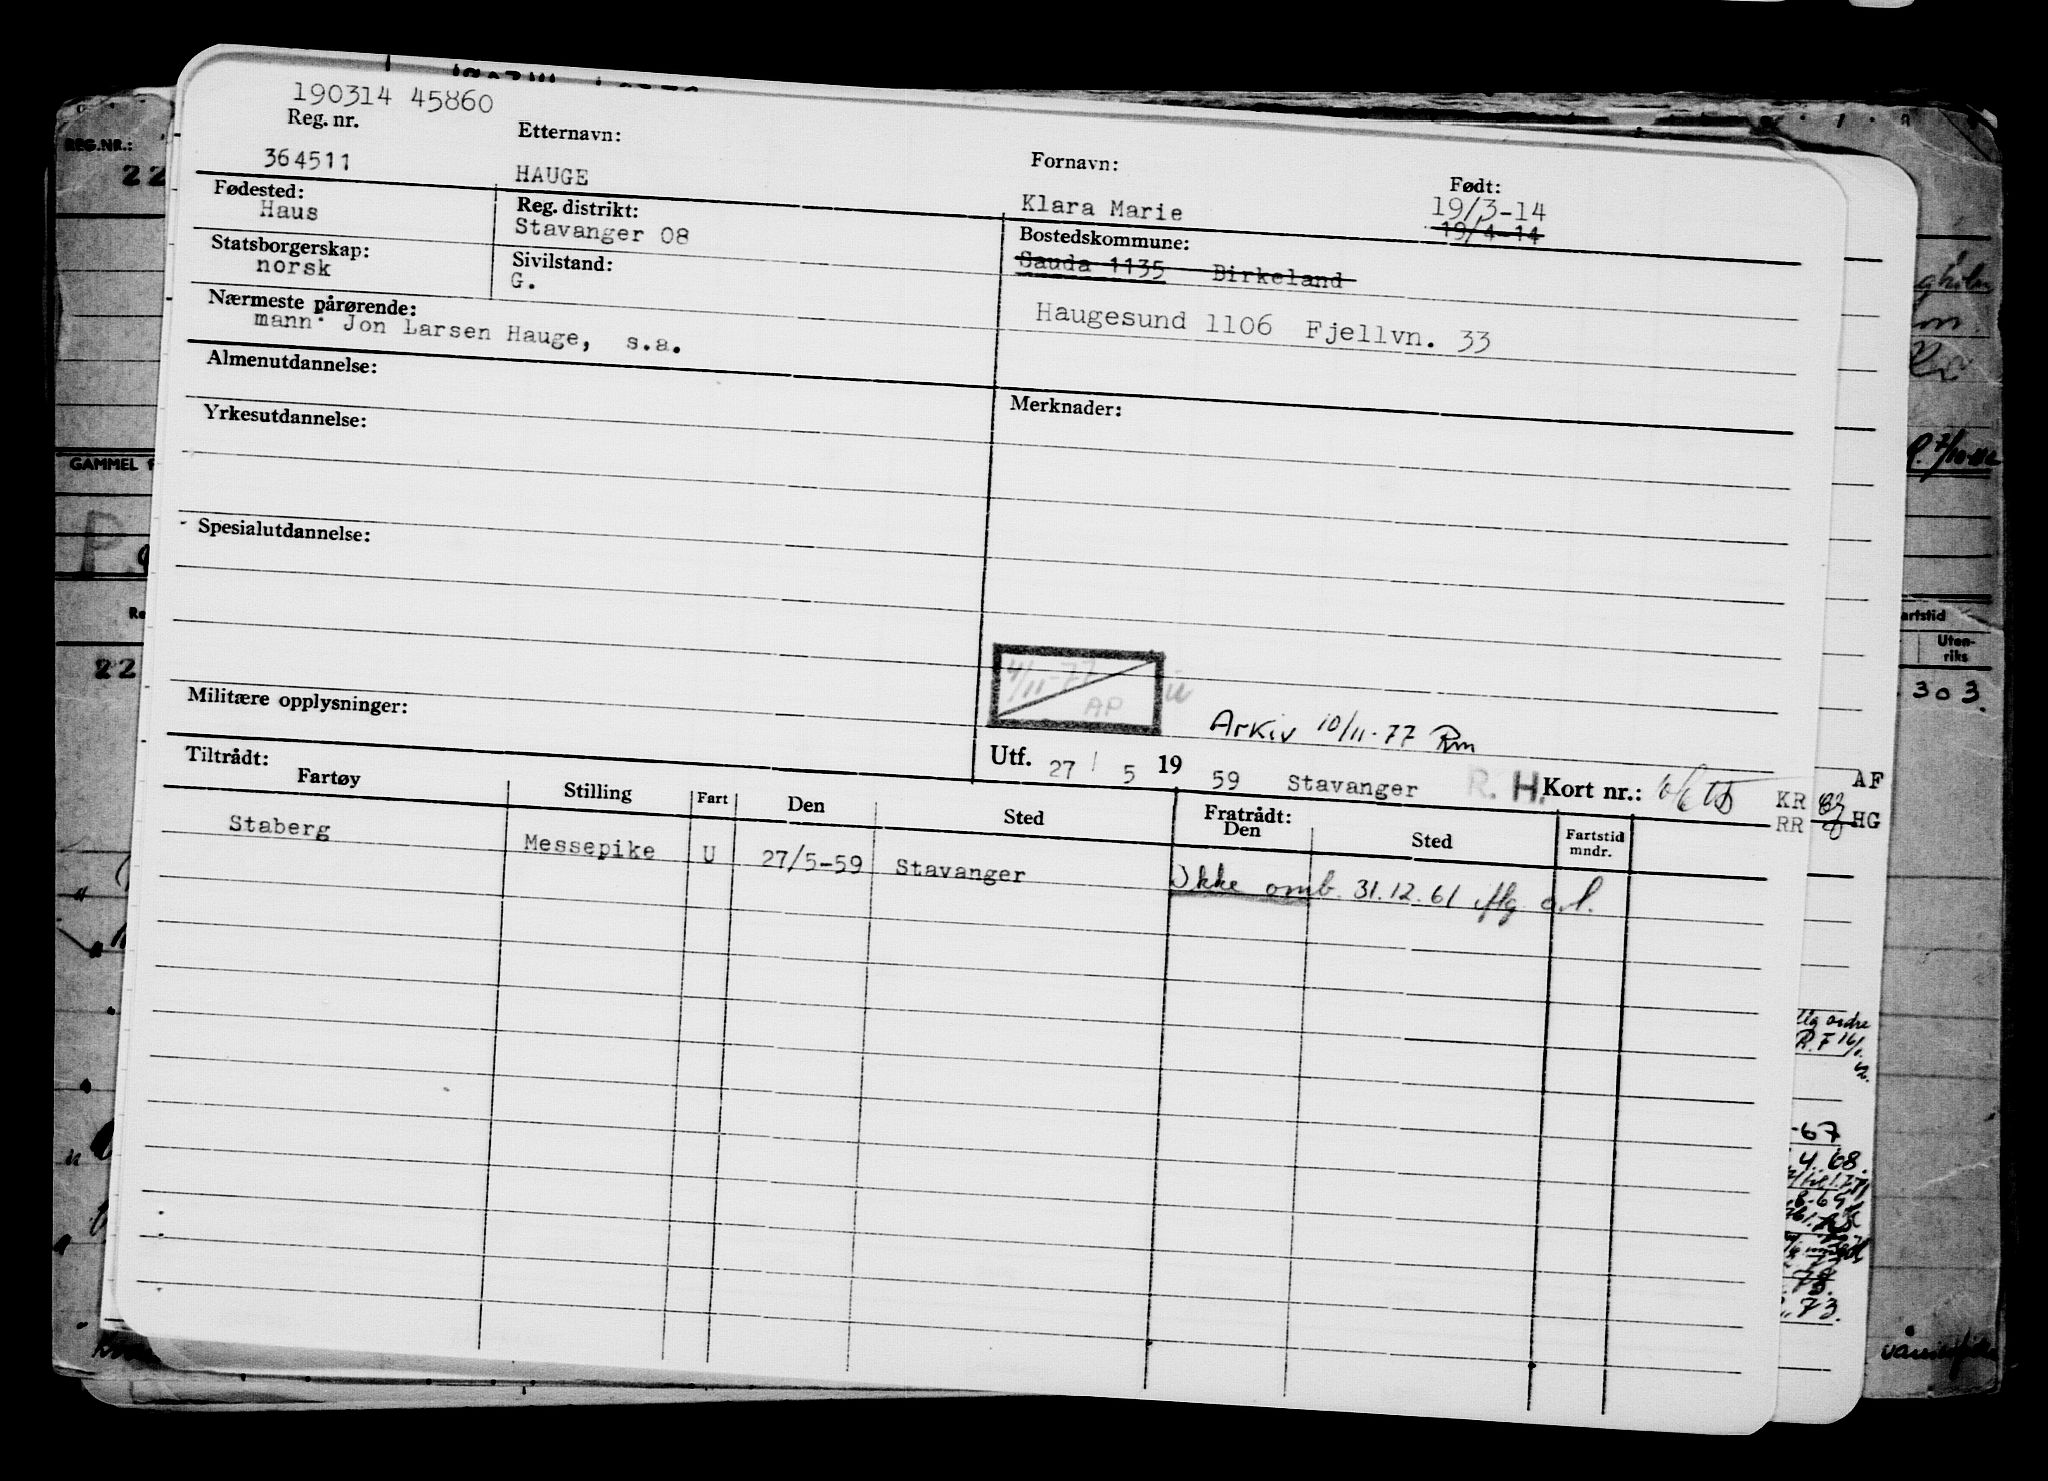 190314 45860
Reg. nr.
Etternavn:
Fornavn:
Født:
364511
HAUGE
Klara Marie
19/3-14
19/4-14
Fødested:
Haus
Reg. distrikt:
Stavanger 08
Bostedskommune:
Sauda 1135 Birkeland
Statsborgerskap:
norsk
Sivilstand:
G.
Haugesund 1106 Fjellvn. 33
Nærmeste pårørende:
mann: Jon Larsen Hauge, s.a.
Almenutdannelse:
Merknader:
Yrkesutdannelse:
Spesialutdannelse:
4/11-77
AP
Militære opplysninger:
Arkiv 10/11-77 Rm
Utf. 27/5 1959 Stavanger R. H. Kort nr.:
Tiltrådt:
Fartøy
Stilling
Fart
Den
Sted
Fratrådt:
Den
Sted
Fartstid
mndr.
Staberg
Messepike
U
27/5-59
Stavanger
Ikke omb. 31.12.61 iflg o.l.
REG.NR.:
22
GAMMEL
22
artstid
Uten-
riks
303.
AF
KR
HG
RR
ordre
R.F 16/
-67
4.68.
73.